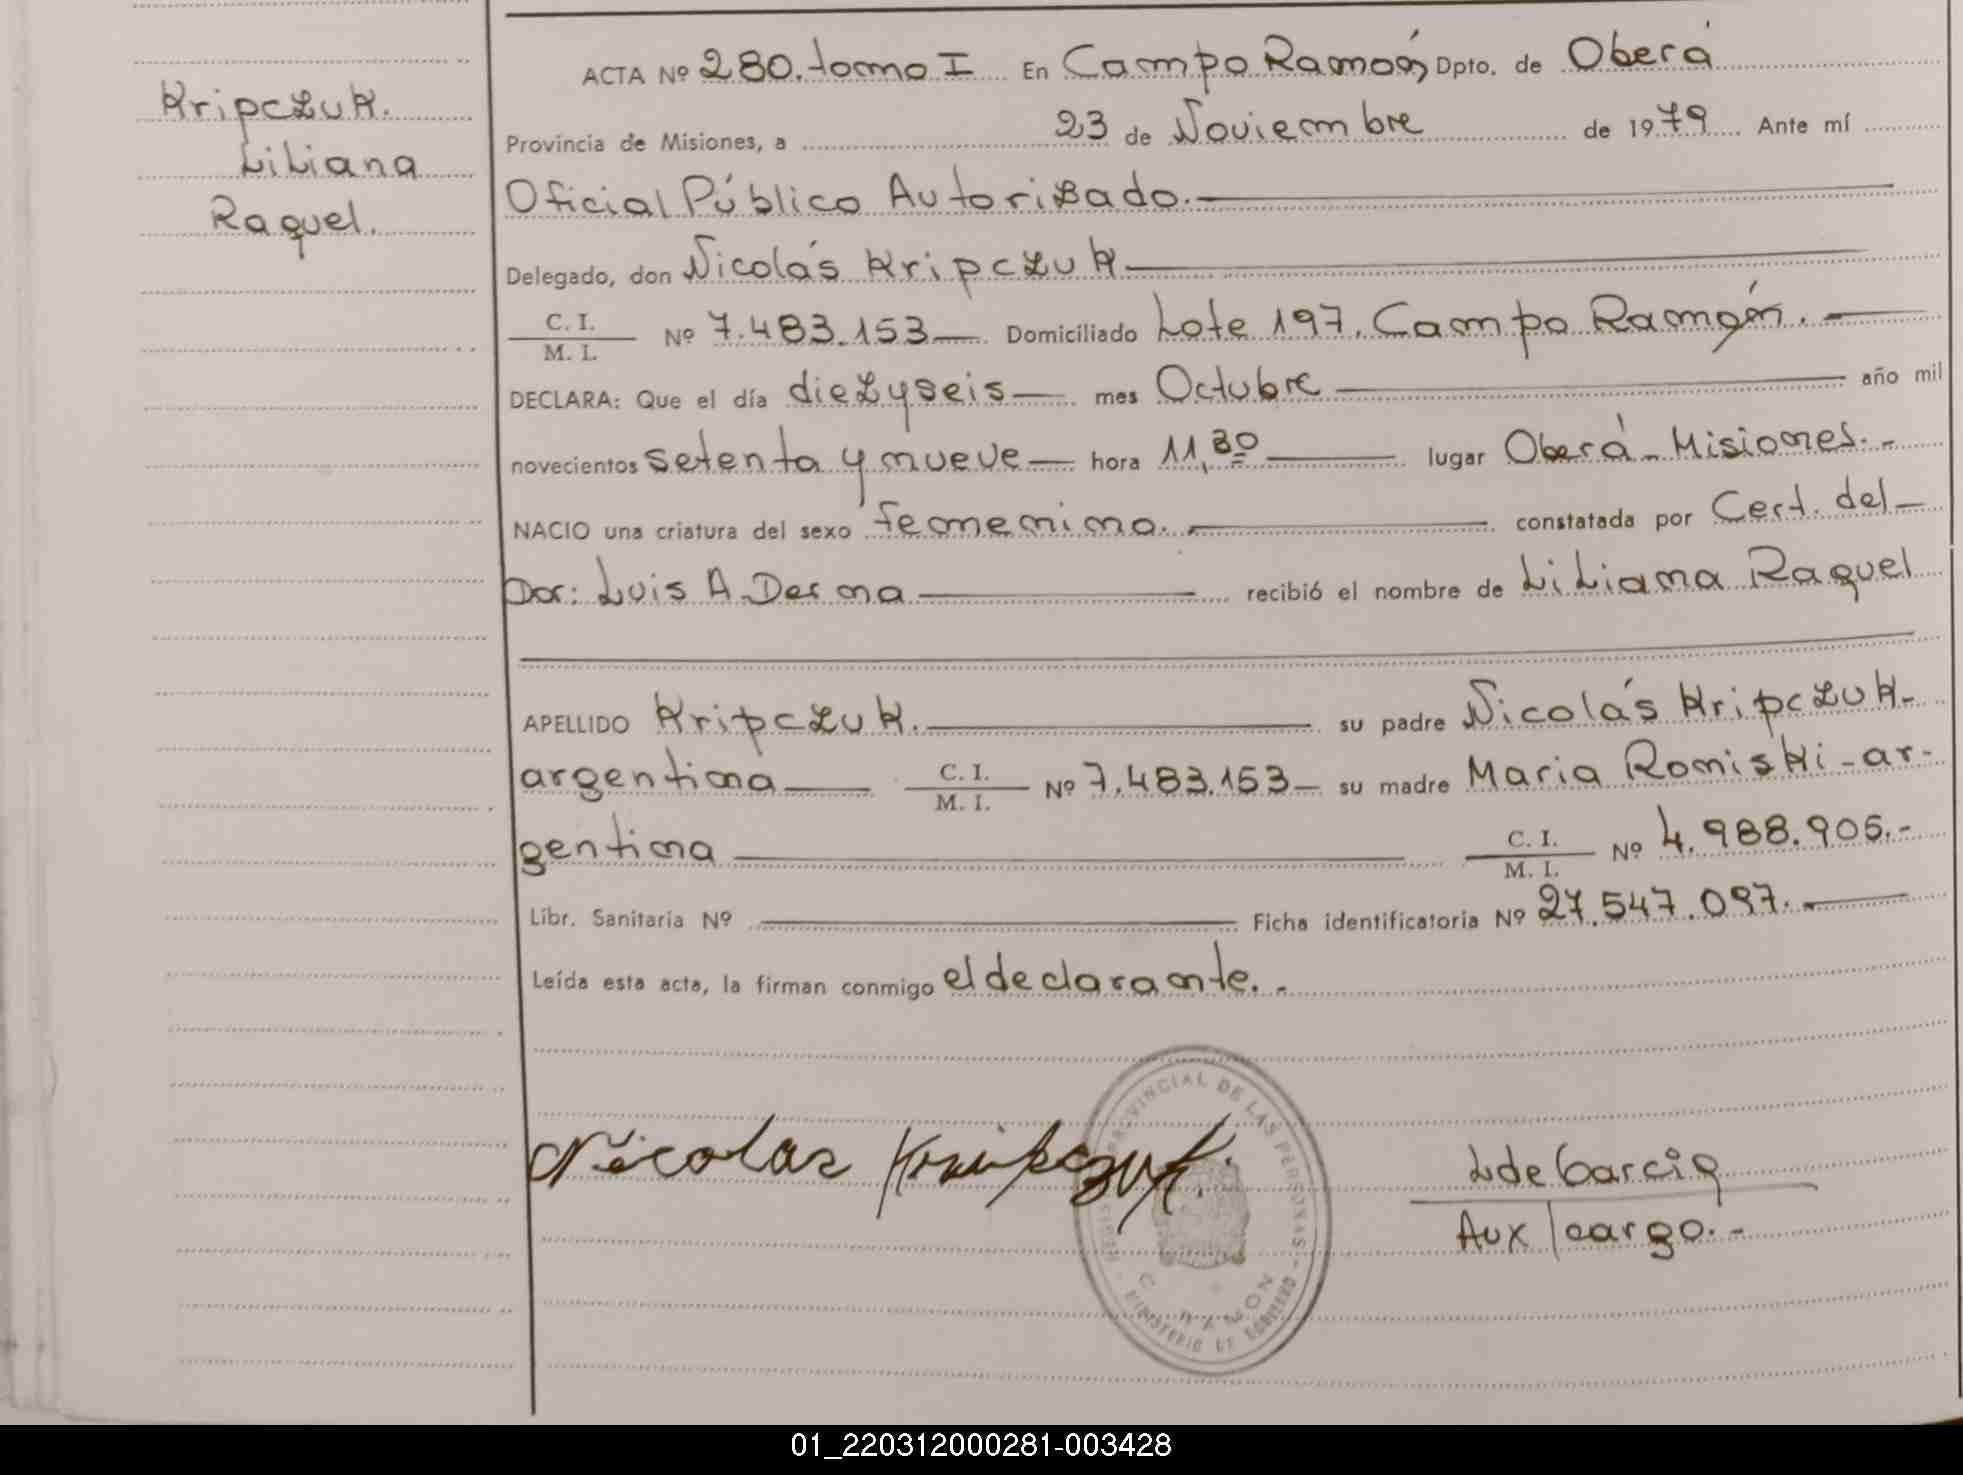 Kripczuk.
Liliana
Raquel.
ACTA Nº 280. tomo I En Campo Ramón, Dpto. de Oberá
Provincia de Misiones, a 23 de Noviembre de 1979 Ante mí
Oficial Público Autorizado.
Delegado, don Nicolás Kripczuk
C. I.
M. I. Nº 7.483.153 Domiciliado Lote 197. Campo Ramón.
DECLARA: Que el día diezyseis mes Octubre año mil
novecientos setenta y nueve hora 11,30 lugar Oberá - Misiones.-
NACIO una criatura del sexo femenino. constatada por Cert. del
Dor: Luis A. Derna recibió el nombre de Liliana Raquel
APELLIDO Kripczuk. su padre Nicolás Kripczuk-
argentina C. I.
M. I. Nº 7.483.153 su madre Maria Roniski - ar-
gentina C. I.
M. I. Nº 4.988.905.-
Libr. Sanitaria Nº Ficha identificatoria Nº 27.547.097.
Leída esta acta, la firman conmigo el declarante.-
Nicolas Kripczuk.
PROVINCIAL DE LAS PERSONAS - MINISTERIO DE GOBIERNO
C. RAMON
L de Garcia
Aux / cargo.-
01_220312000281-003428